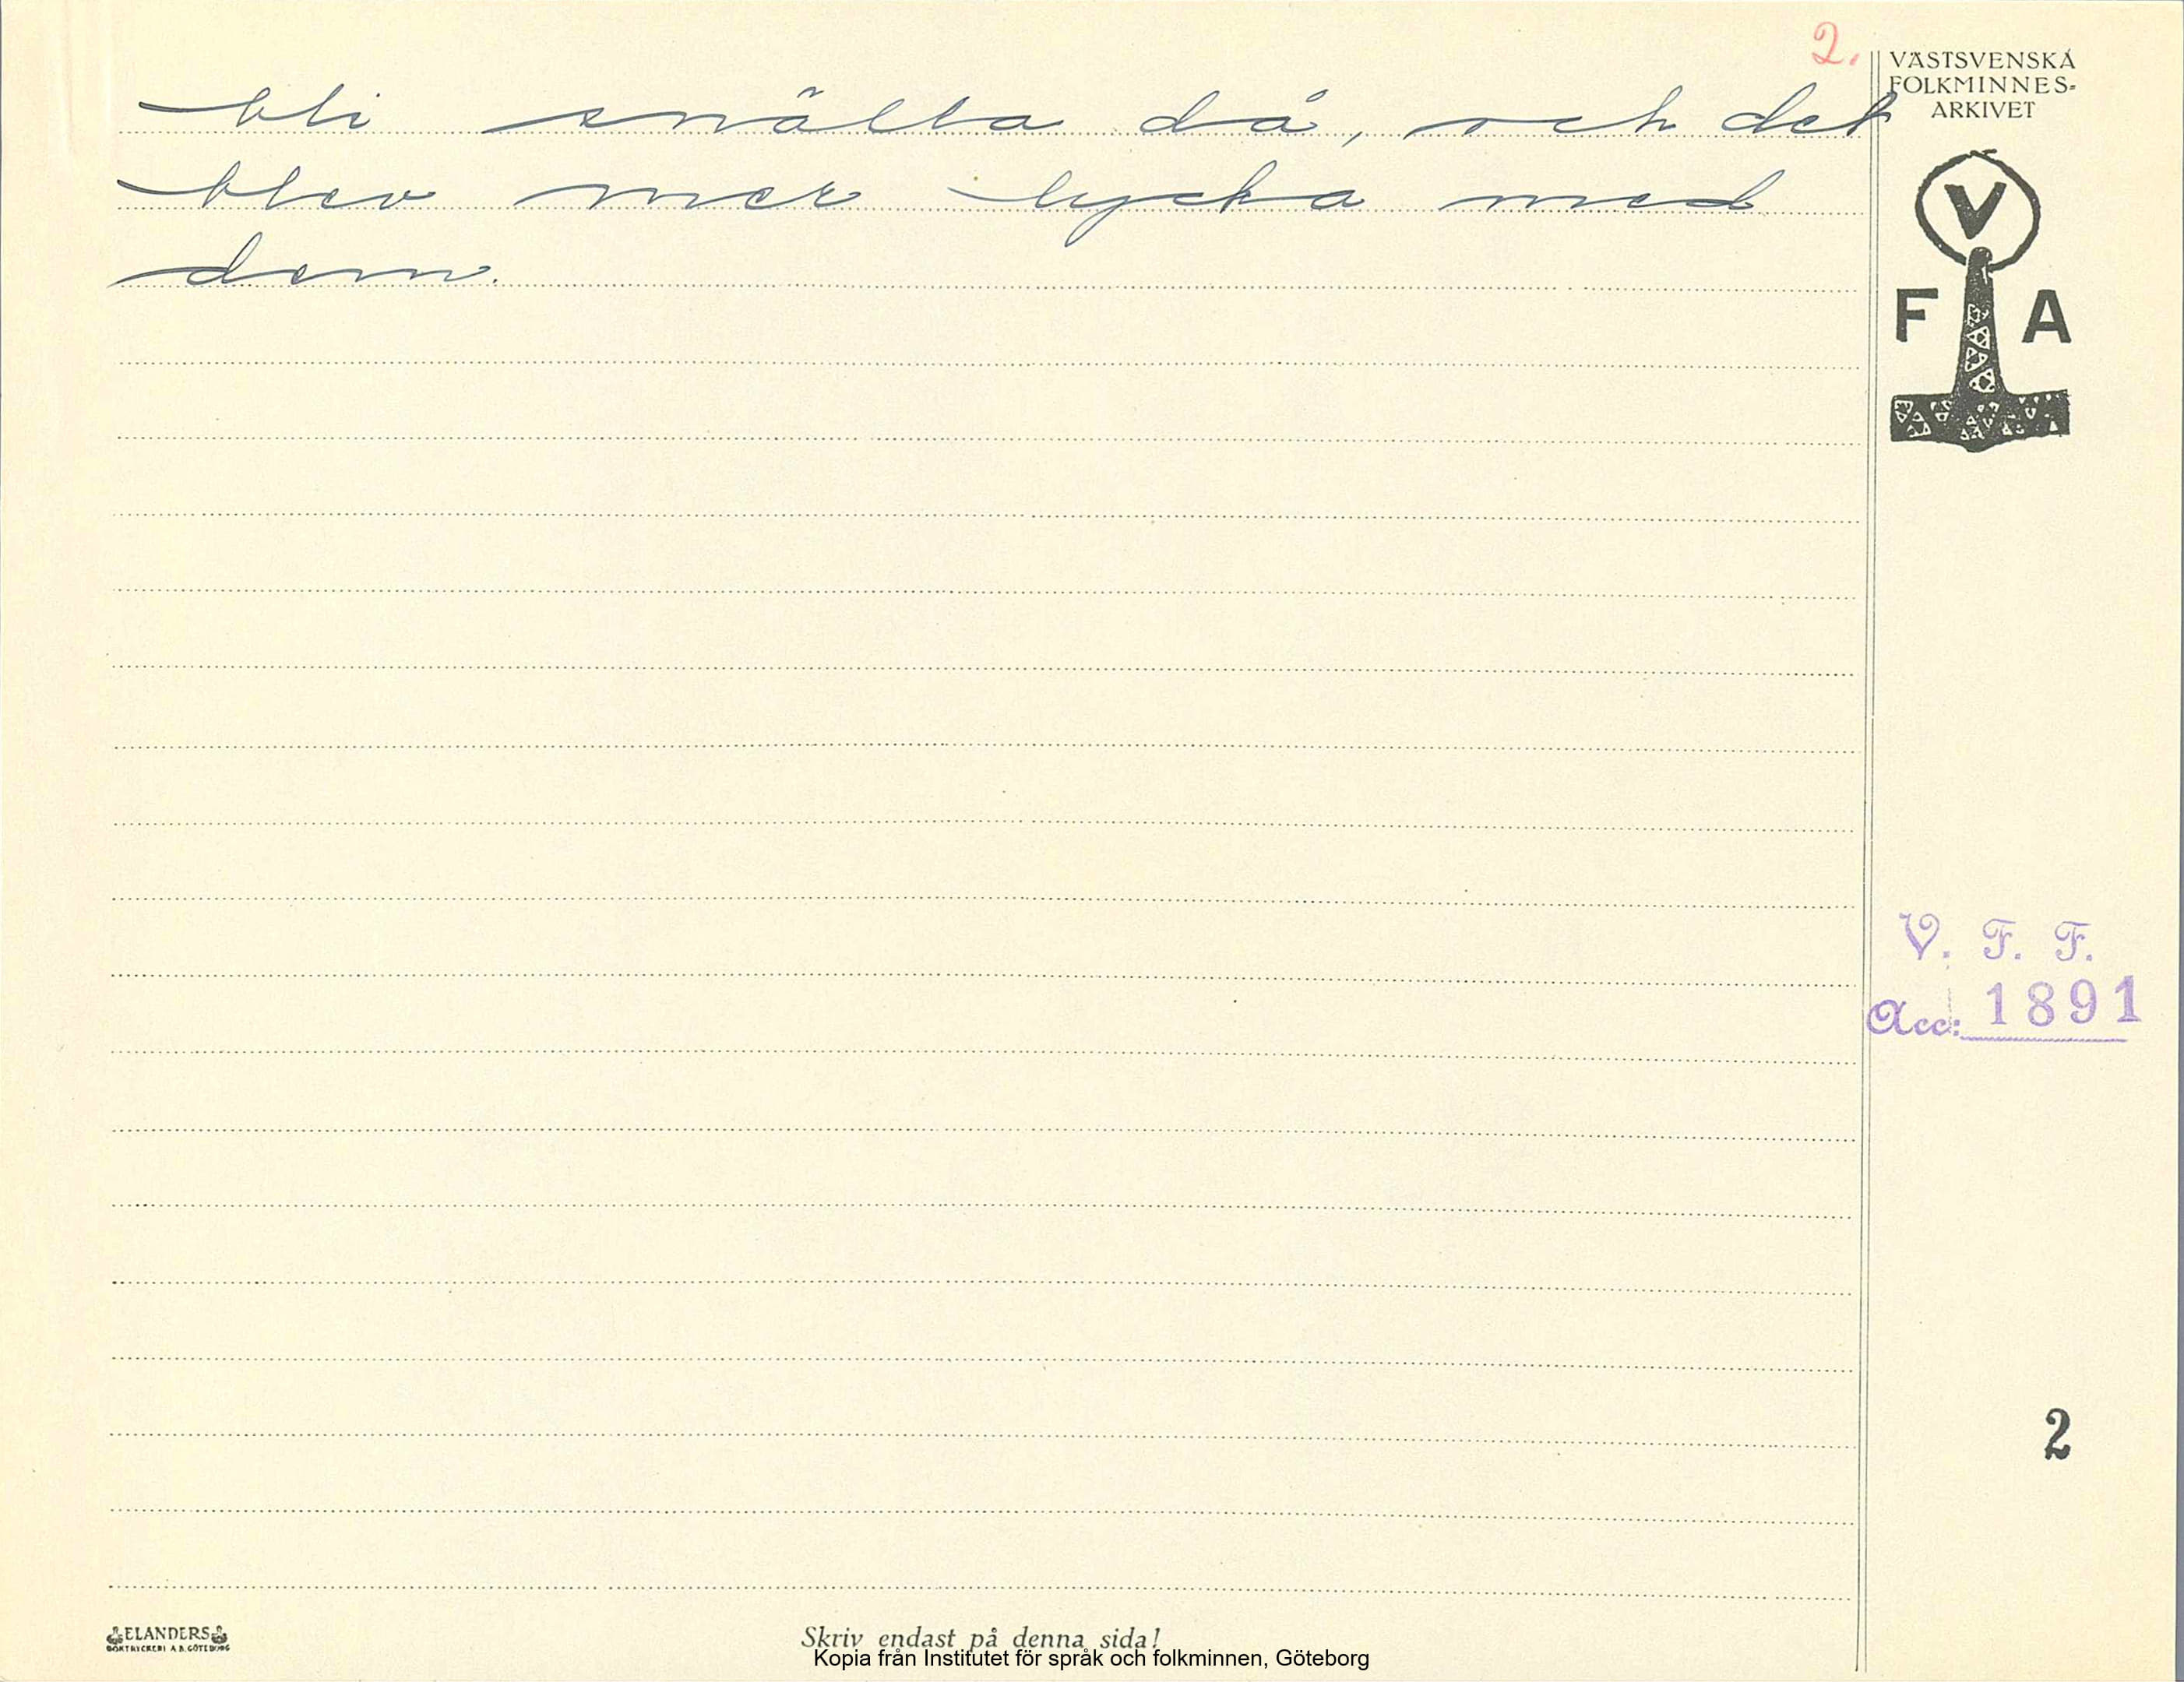 2.
VÄSTSVENSKA
FOLKMINNES-
ARKIVET
bli snälla då, och det
blev mer lycka med
dem.
V
F A
V. F. F.
Acc: 1891
2
ELANDERS
BOKTRYCKERI A.B. GÖTEBORG
Skriv endast på denna sida!
Kopia från Institutet för språk och folkminnen, Göteborg